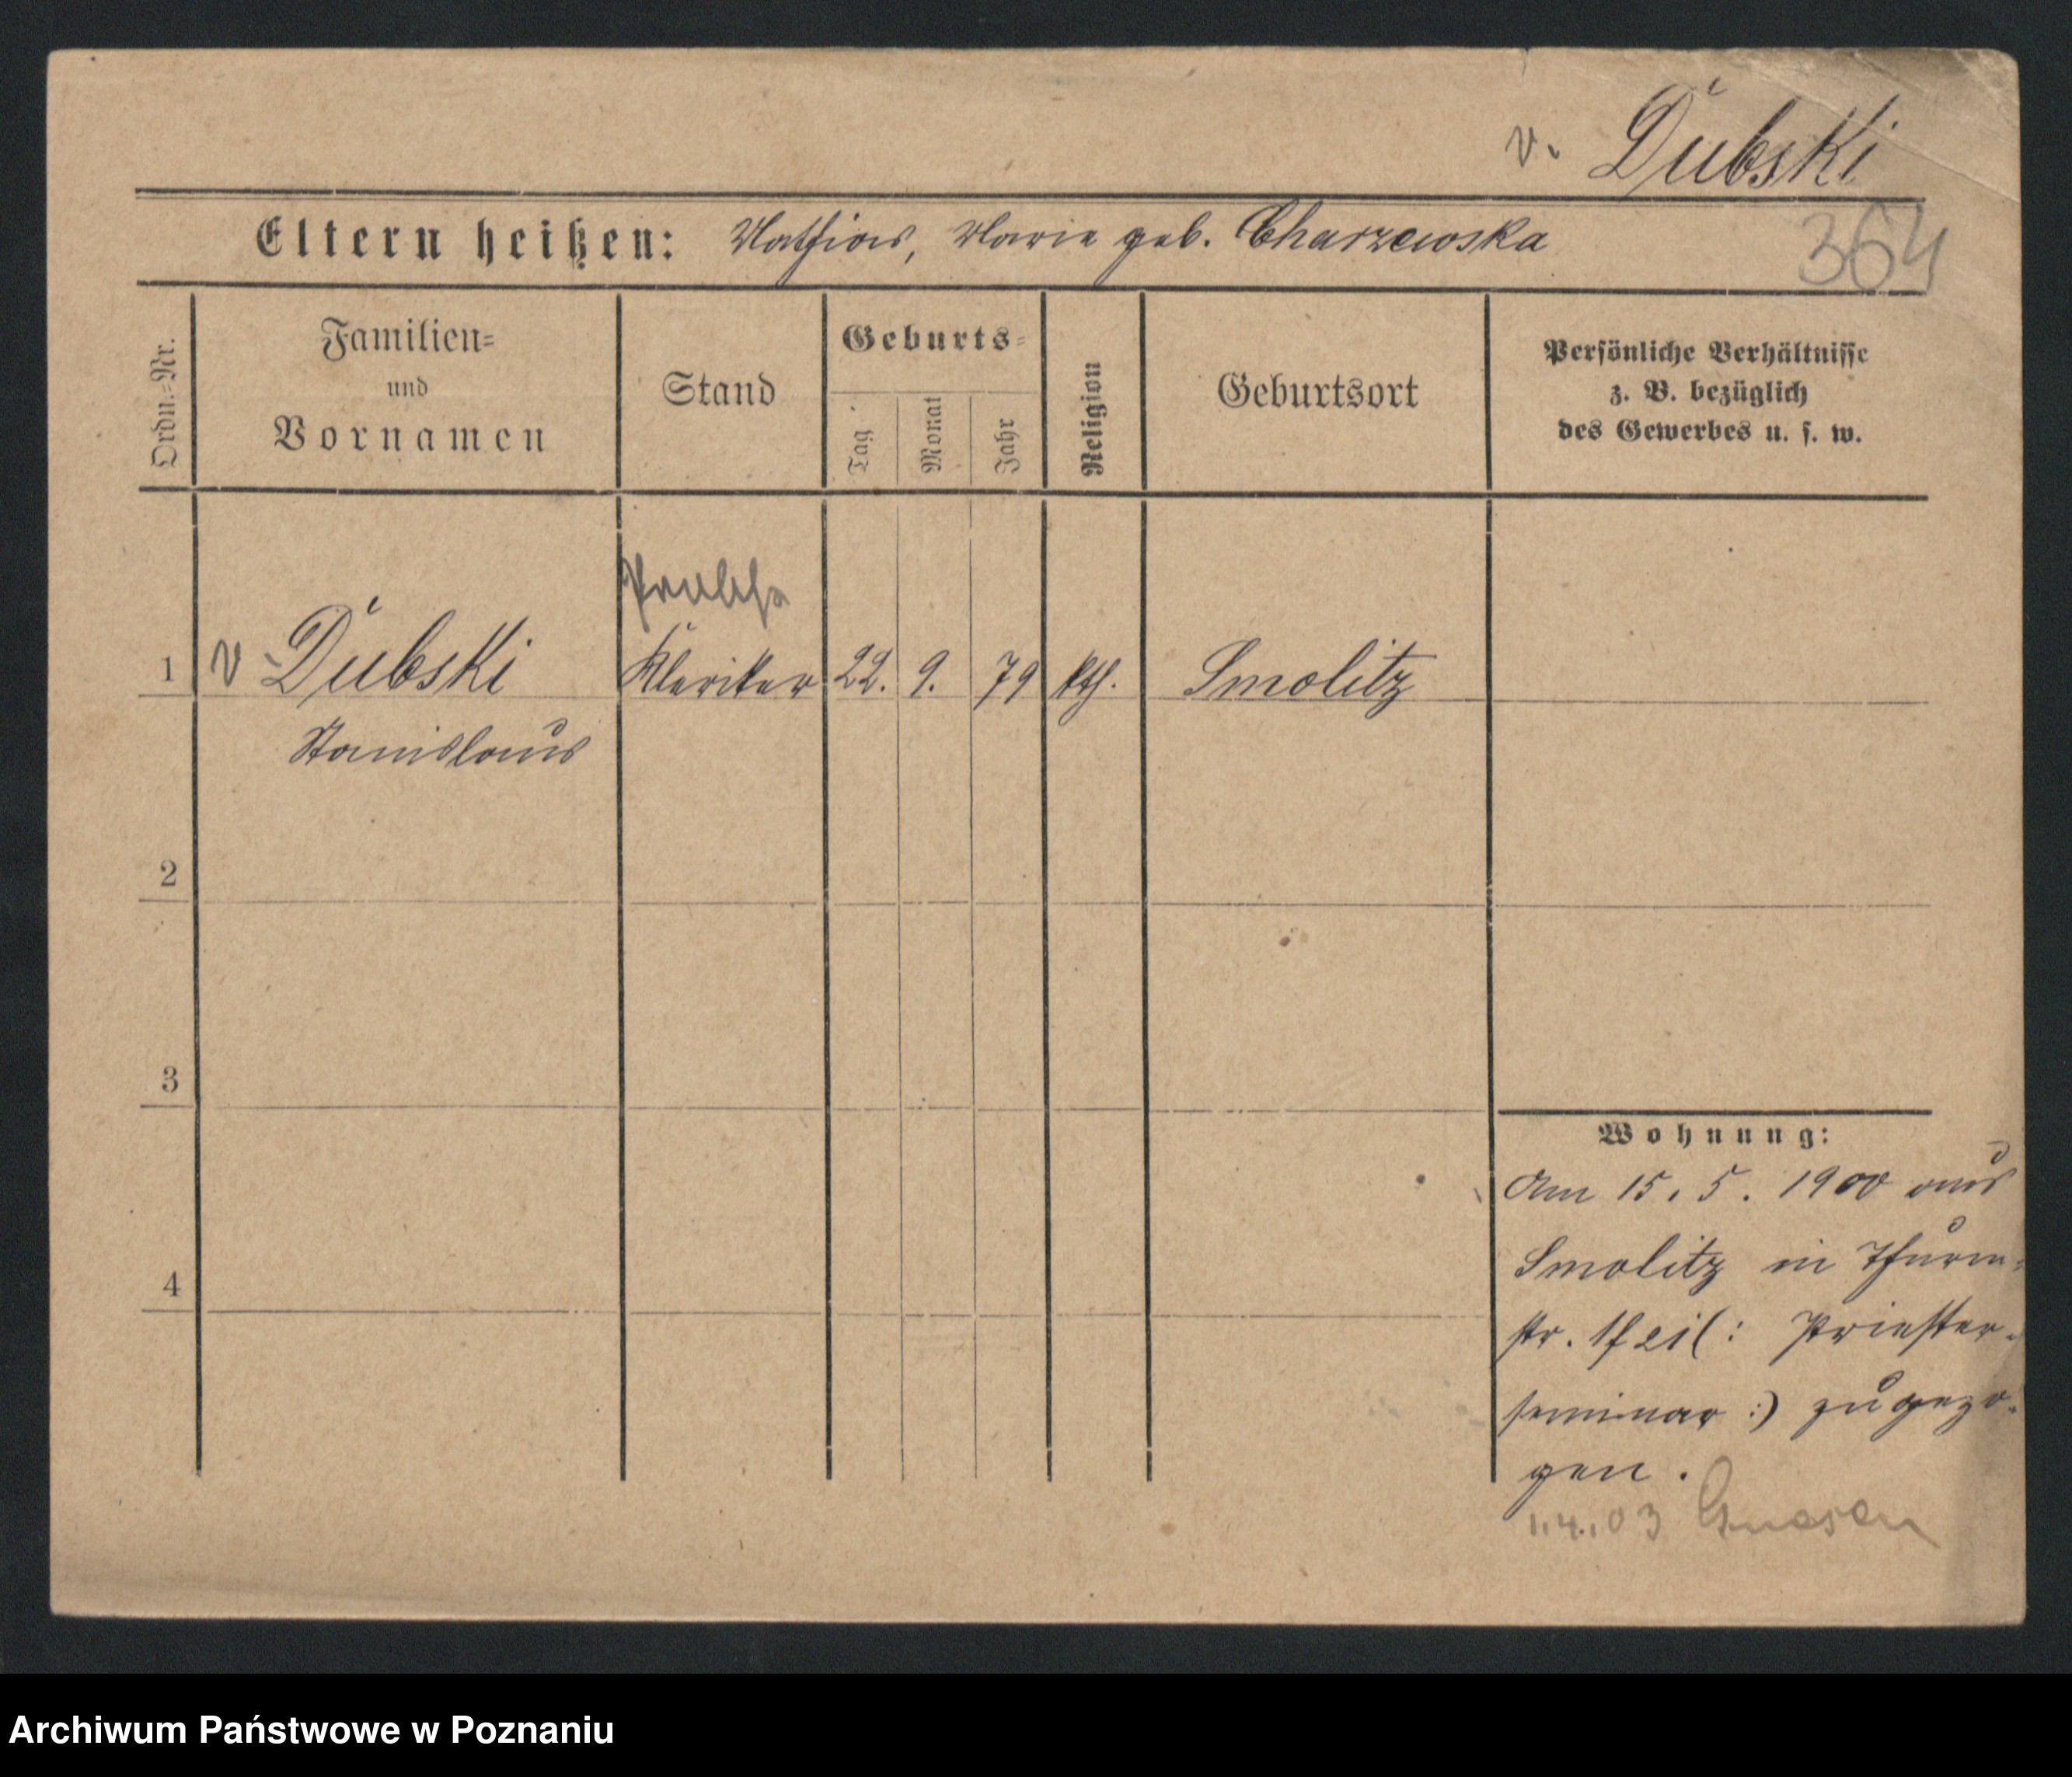 v. Dubski
Eltern heißen: Mathias, Marie geb. Charzewska
364
Ordn.=Nr.
Familien=
und
Vornamen
Stand
Geburts=
Tag
Monat
Jahr
Religion
Geburtsort
Persönliche Verhältnisse
z. B. bezüglich
des Gewerbes u. s. w.
1 v. Dubski Kleriker 22. 9. 79 kth. Smolitz
Stanislaus
2
3
4
Wohnung:
Am 15. 5. 1900 aus
Smolitz in Thurm-
str. (: Priester-
seminar :) zugezo-
gen.
1.4.03 Gnesen
Archiwum Państwowe w Poznaniu